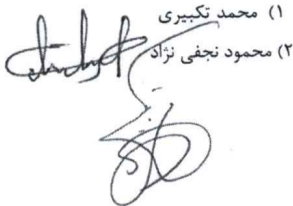 ۱) محمد تکبیری
۲) محمود نجفی نژاد